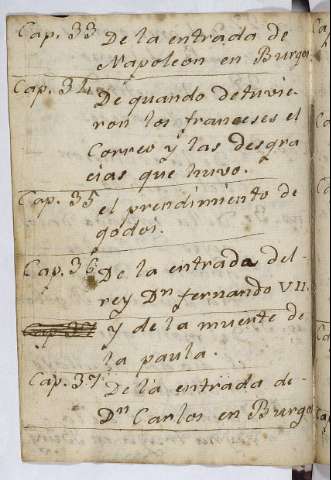 Cap. 33 De la entrada de
Napoleon en Burgos
Cap. 34 De quando detuvie-
ron los franceses el
Correo y las desgra
cias que huvo.
Cap. 35 el prendimiento de
godoi.
Cap. 36 De la entrada del
rey Dn fernando VII.
y de la muente de
la paula.
Cap. 37 De la entrada de
Dn Carlos en Burgos